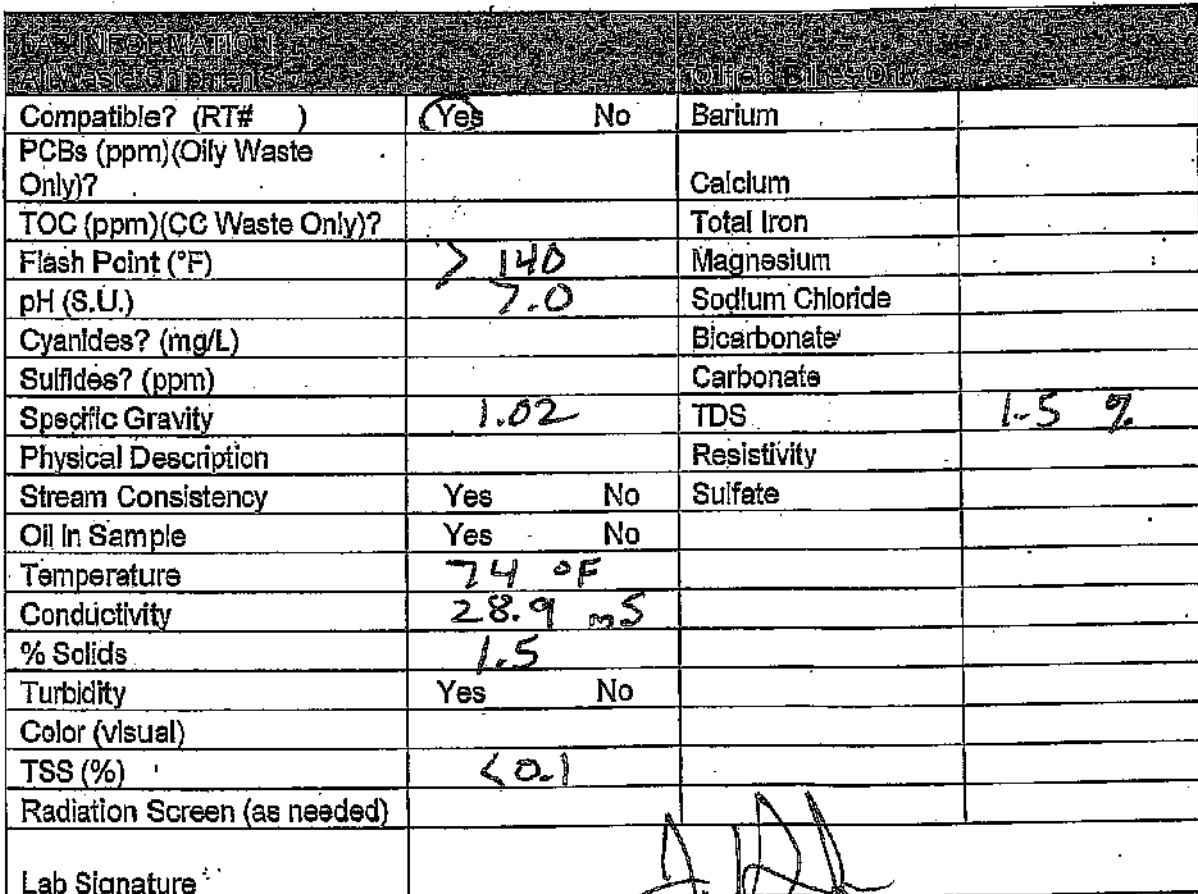 LAB INFORMATION
All Waste Shipments Oilfield Brines Only
Compatible? (RT# ) Yes No Barium
PCBs (ppm)(Oily Waste
Only)? Calcium
TOC (ppm)(CC Waste Only)? Total Iron
Flash Point (°F) > 140 Magnesium
pH (S.U.) 7.0 Sodium Chloride
Cyanides? (mg/L) Bicarbonate
Sulfides? (ppm) Carbonate
Specific Gravity 1.02 TDS 1.5 %
Physical Description Resistivity
Stream Consistency Yes No Sulfate
Oil In Sample Yes No
Temperature 74 °F
Conductivity 28.9 mS
% Solids 1.5
Turbidity Yes No
Color (visual)
TSS (%) <0.1
Radiation Screen (as needed)
Lab Signature